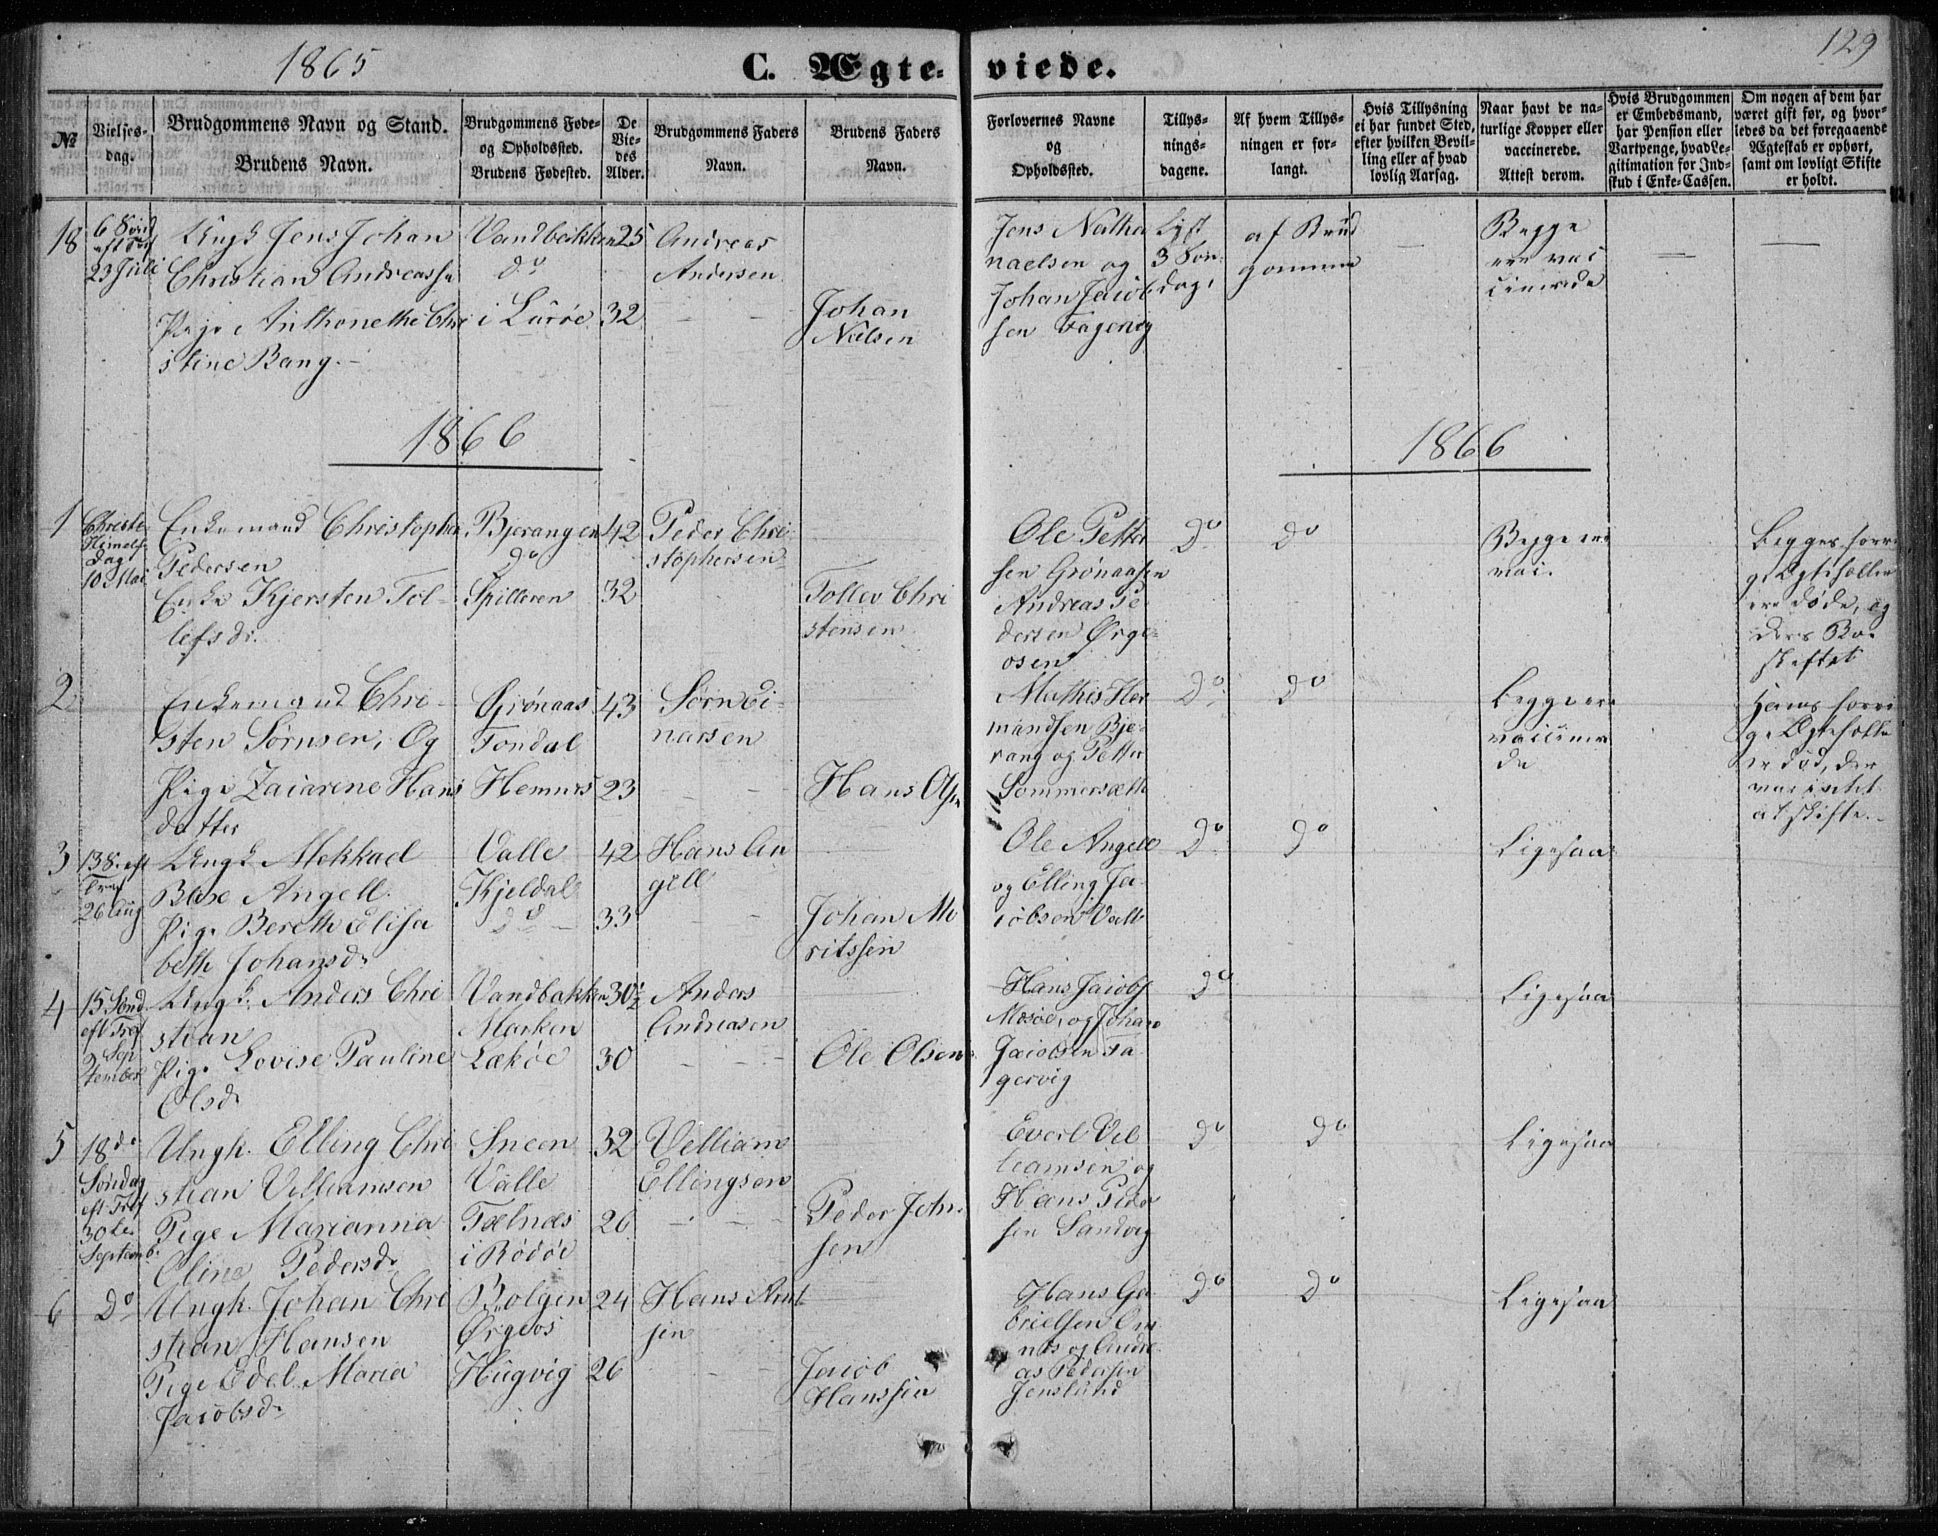 1865
C. Ægte-
viede.
129
№
Vielses-
dag.
Brudgommens Navn og Stand.
Brudens Navn.
Brudgommens Føde-
og Opholdssted.
Brudens Fødested.
De
Vie-
des
Alder.
Brudgommens Faders
Navn.
Brudens Faders
Navn.
Forlovernes Navne
og
Opholdssted.
Tillys-
nings-
dagene.
Af hvem Tillys-
ningen er for-
langt.
Hvis Tillysning
ei har fundet Sted,
efter hvilken Bevil-
ling eller af hvad
lovlig Aarsag.
Naar havt de na-
turlige Kopper eller
vaccinerede.
Attest derom.
Hvis Brudgommen
er Embedsmand,
har Pension eller
Vartpenge, hvad Le-
gitimation for Ind-
skud i Enke-Cassen.
Om nogen af dem har
været gift før, og hvor-
ledes da det foregaaende
Ægteskab er ophørt,
samt om lovligt Skifte
er holdt.
18
6 Sønd
eft Tref
23 Juli
Ungk Jens Johan
Christian Andreassen
Pige Anthonethe Chri
stine Bang.
Vandbakken
do
i Lurøe
25
32
Andreas
Andersen
Johan
Nilsen
Jens Natha
naelsen og
Johan Jacob
sen Fagervig
Lyst
3 Søn
dage
af Brud
gommen
Begge
ere vac
cinerede
1866
1866
1
Christi
Himelf
Dag
10 Mai
Enkemand Christopher
Pedersen
Enke Kjersten Tol-
lefsdr
Bjerangen
do
Spilleren
42
32
Peder Chri
stophersen
Tollev Chri
stensen
Ole Petter
sen Grønaasen
Andreas Pe
dersen Ørge
osen
do
do
Begge ere
vac.
Begges forri
ge Ægtefæller
ere døde, og
deres Bo
skiftet
2
Enkemand Chri-
sten Sørnsen, Og
Pige Zacarine Hans
datter
Grønaas
Tondal
Hemnes
43
23
Sørn Ei-
narsen
Hans Olsen
Mathis Her
mandsen Bje-
rang og Petter
Sommersæth
do
do
Begge ere
vaccinere
de
Hans forri
ge Ægtefælle
er død, der
var intet
at skifte.
3
13 S. eft
Tref
26 Aug
Ungk Mekkael
Baxe Angell.
Pige Bereth Elisa
beth Johansdr
Valle
Kjeldal
do
42
33
Hans An
gell
Johan Mo
ritssen
Ole Angell
og Elling Ja-
cobsen Valle
do
do
Ligesaa
4
15 Sønd
eft Tref
2 Sep
tember
Ungk. Anders Chri
stian
Pige Lovise Pauline
Olsdr
Vandbakken
Marken
Løkøe
30½
30
Anders
Andreasen
Ole Olsen
Hans Jacobs
Mosøe, og Johan
Jacobsen Fa
gervig
do
Ligesaa
5
18de
Søndag
eft Tref
30te
Septemb.
Ungk. Elling Chri
stian Velliamsen
Pige Marianna
Oline Pedersdr
Sneen
Valle
Tælnæs
i Rødøe
32
26
Velliam
Ellingsen
Peder John
sen
Evert Vel
liamsen og
Hans Peder
sen Sandvig
do
do
Ligesaa
6
do
Ungk. Johan Chri
stian Hansen
Pige Edel Maria
Jacobsdr
Bolgen
Ørgeos
Hugvig
24
26
Hans Arnt
sen
Jacob
Hanssen
Hans Ga
brielsen Em
nes og Andre
as Pedersen
Jenslund
do
do
Ligesaa